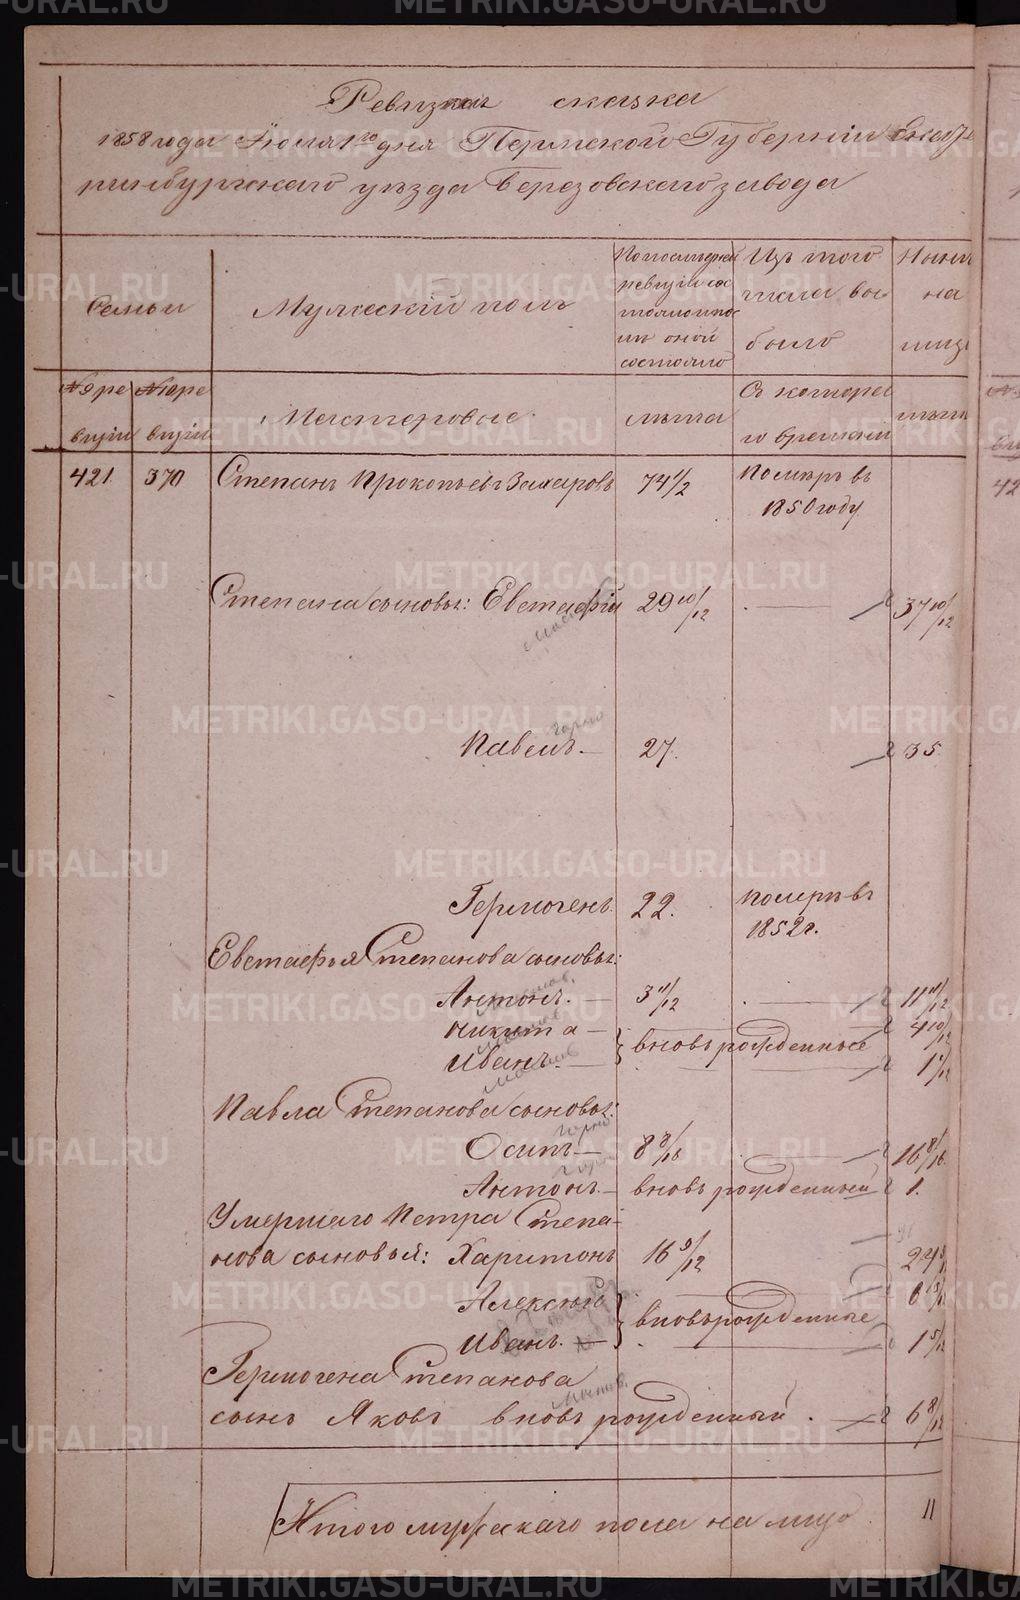 Ревизкая сказка
1858 года Июля 1го дня Пермской Губернiи Екате
ринбургскаго уѣзда Березовскаго завода
Семьи
Мужескiй полъ
По последней ревизiи сос тояло и по сл оной состояло
Изъ того числа выбыло
Ныне на лицо
№ 9 ре визiи
№ 10 ре визiи
Мастеровые.
лѣта
Съ котораго времяни
лѣты
421. 370 Степанъ Прокопьевъ Захаровъ 74 1/2 Померъ въ
1850 году
Степана сыновья: Евстафiй 29 10/12 37 10/12
Павелъ. 27. 35
Гермогенъ. 22. померъ въ
1852 г.
Евстафья Степанова сыновья:
Антонъ. 3 11/12 11 11/12
Никита 4 10/12
вновь рожденные
Иванъ. 1 1/12
Павла Степанова сыновья:
Осипъ 8 8/16 16 8/16
Антонъ. вновь рожденный 1.
Умершаго Петра Степа-
нова сыновья: Харитонъ 16 9/12 24
Алексѣй 6
вновь рожденные
Иванъ. 1 5/12
Гермогена Степанова
сынъ Яковъ вновь рожденный. 6 8/12
Итого мужскаго пола на лицо 11
METRIKI.GASO-URAL.RU